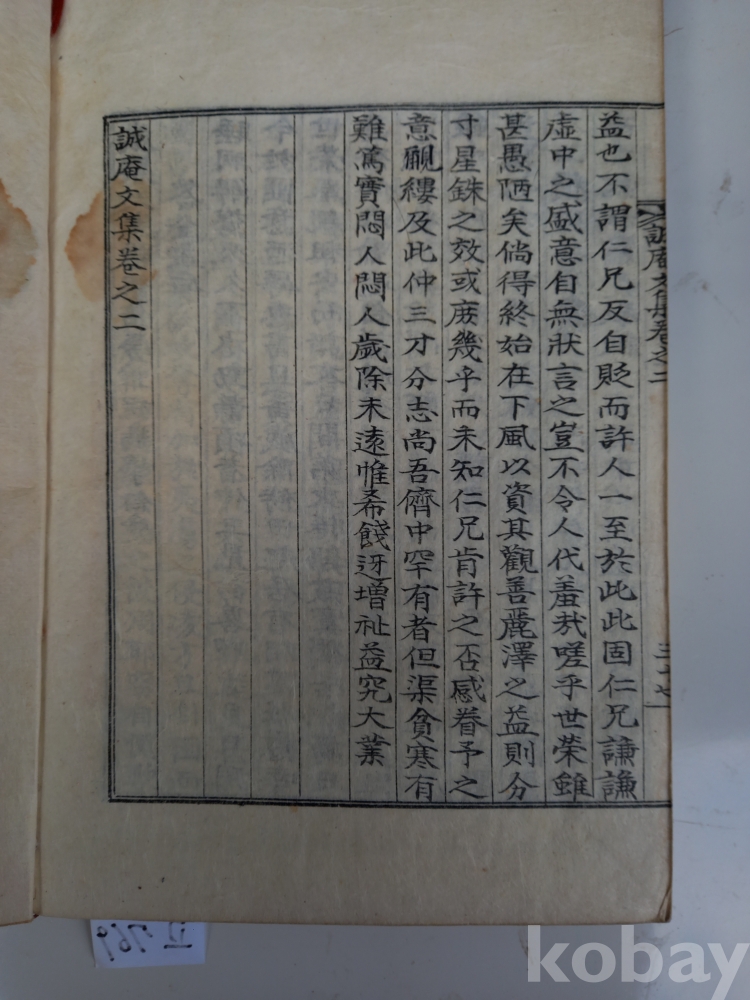 益也不謂仁兄反自貶而許人一至於此此固仁兄謙謙
虛中之盛意自無狀言之豈不令人代羞哉嗟乎世榮雖
甚愚陋矣倘得終始在下風以資其觀善麗澤之益則分
寸星銖之效或庻幾乎而未知仁兄肯許之否感眷予之
意覼縷及此仲三才分志尚吾儕中罕有者但渠貧寒有
難爲實悶人悶人歲除未遠惟希餞迓增祉益究大業
誠庵文集卷之二
誠庵文集卷之二
三十七
kobay